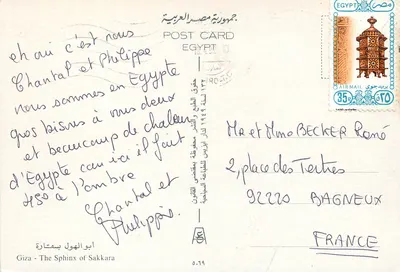 جمهورية مصر العربية
POST CARD
EGYPT
eh oui c'est nous
Chantal et Philippe
nous sommes en Egypte
gros bisous à vous deux
et beaucoup de chaleur
d'Egypte car ici il fait
45° à l'ombre
Chantal et
Philippe.
EGYPT مصر
AIR MAIL
35 ٣٥
Mr et Mme BECKER René
2, place des Tertres
92220 BAGNEUX
FRANCE
أبو الهول بسقارة
Giza - The Sphinx of Sakkara
٥٠٦٩